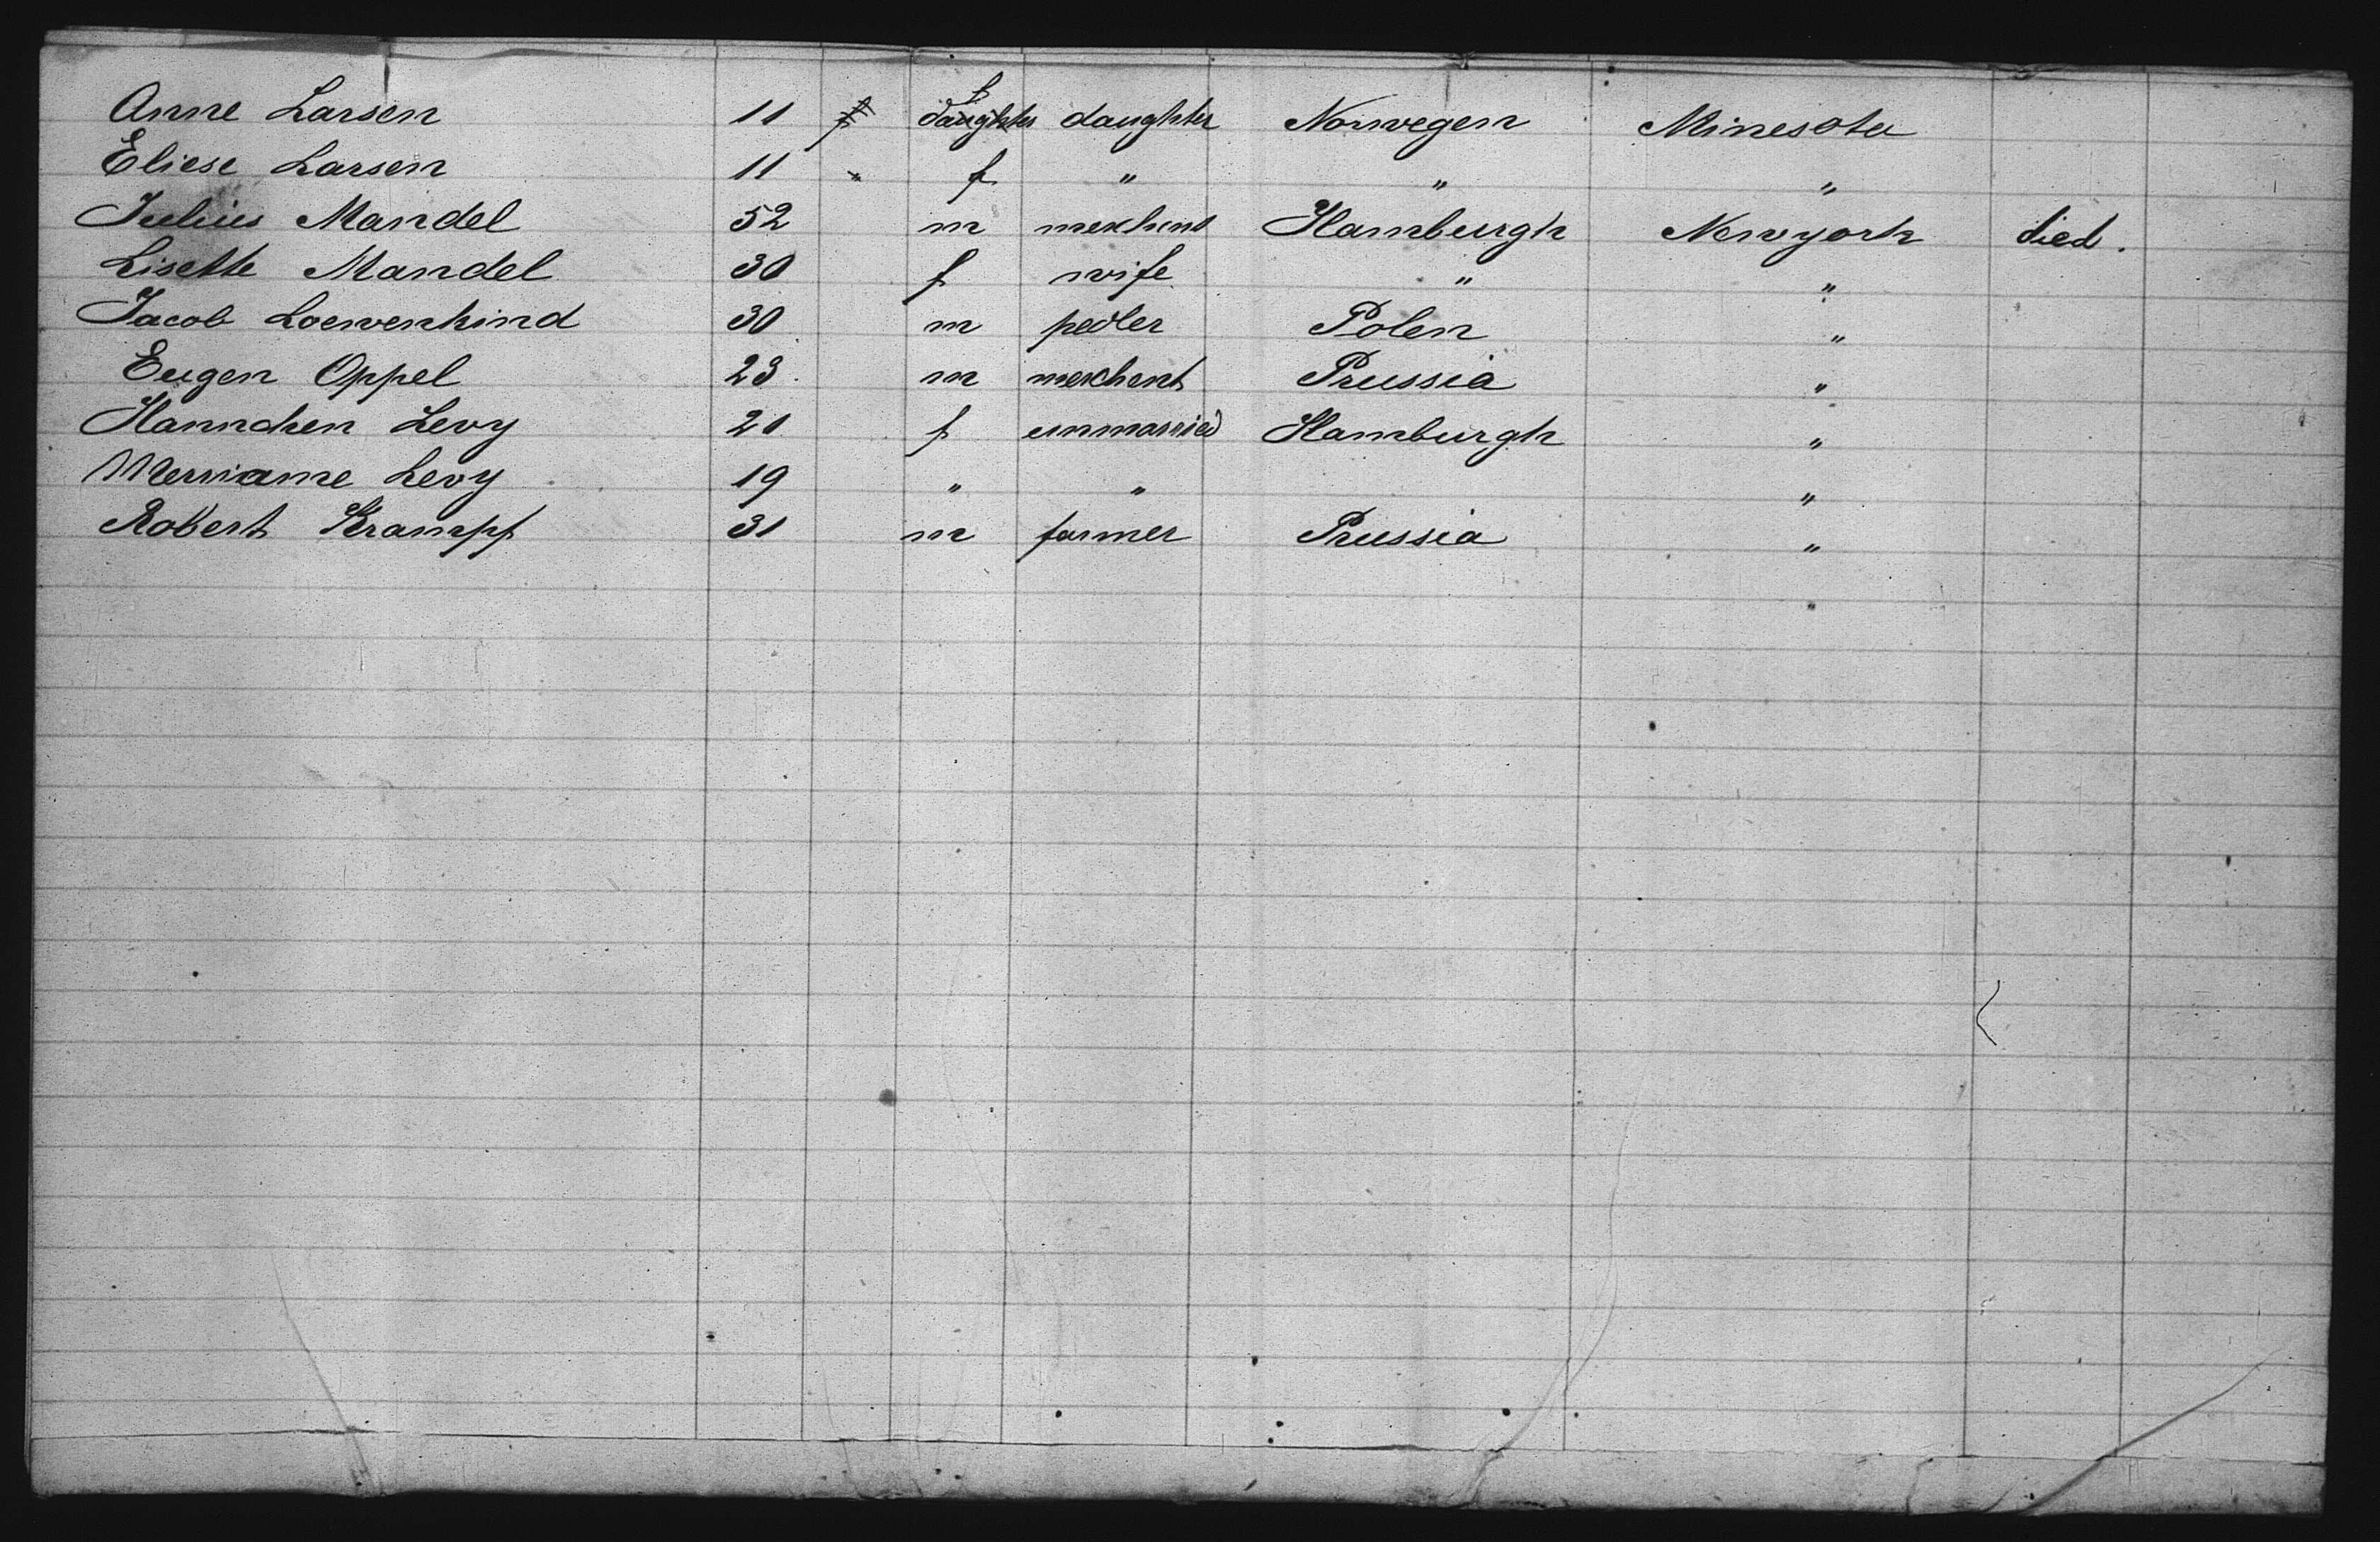 Anne Larsen 11 f daughter f daughter Norwegen Minesota
Eliese Larsen 11 " f " " "
Julius Mandel 52 m merchent Hamburgh Newyork died.
Lisette Mandel 30 f wife " "
Jacob Loewenkind 30 m pedler Polen "
Eugen Oppel 23 m merchent Prussia "
Hannchen Levy 21 f unmarried Hamburgh "
Merriame Levy 19 " " "
Robert Krampf 31 m farmer Prussia "
"